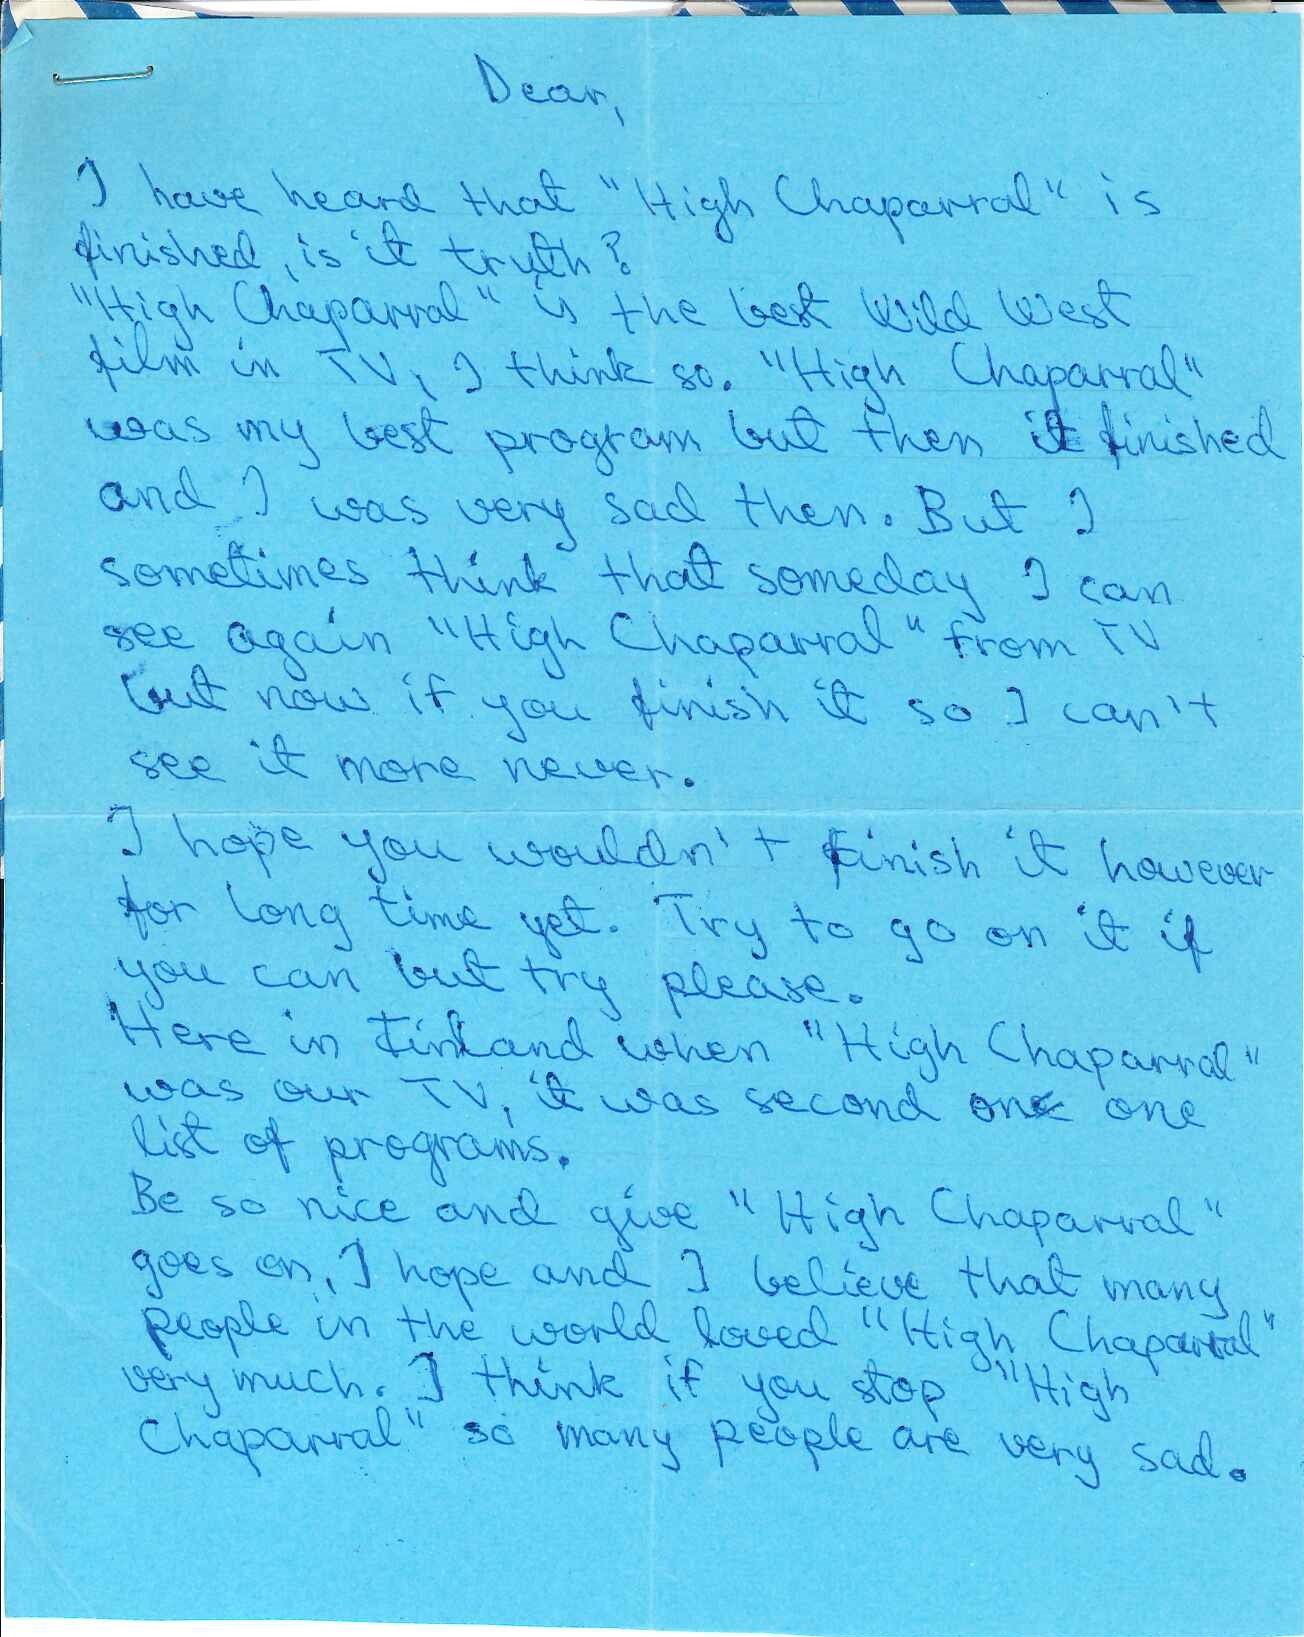 Dear,
I have heard that "High Chaparral" is
finished, is it truth?
"High Chaparral" is the best Wild West
film in TV, I think so. "High Chaparral"
was my best program but then it finished
and I was very sad then. But I
sometimes think that someday I can
see again "High Chaparral" from TV
but now if you finish it so I can't
see it more never.
I hope you wouldn't finish it however
for long time yet. Try to go on it if
you can but try please.
Here in Finland when "High Chaparral"
was our TV, it was second one one
list of programs.
Be so nice and give "High Chaparral"
goes on, I hope and I believe that many
people in the world loved "High Chaparral"
very much. I think if you stop "High
Chaparral" so many people are very sad.